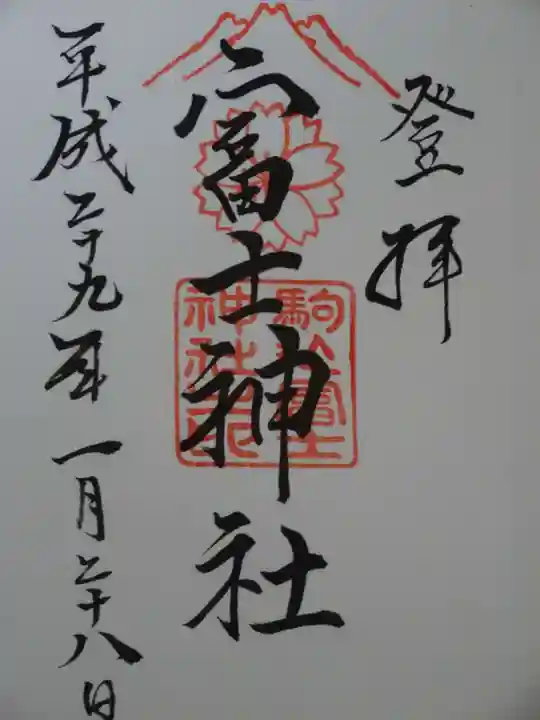 登拝
富士神社
駒込富士
神社之印
平成二十九年
一月二十八日